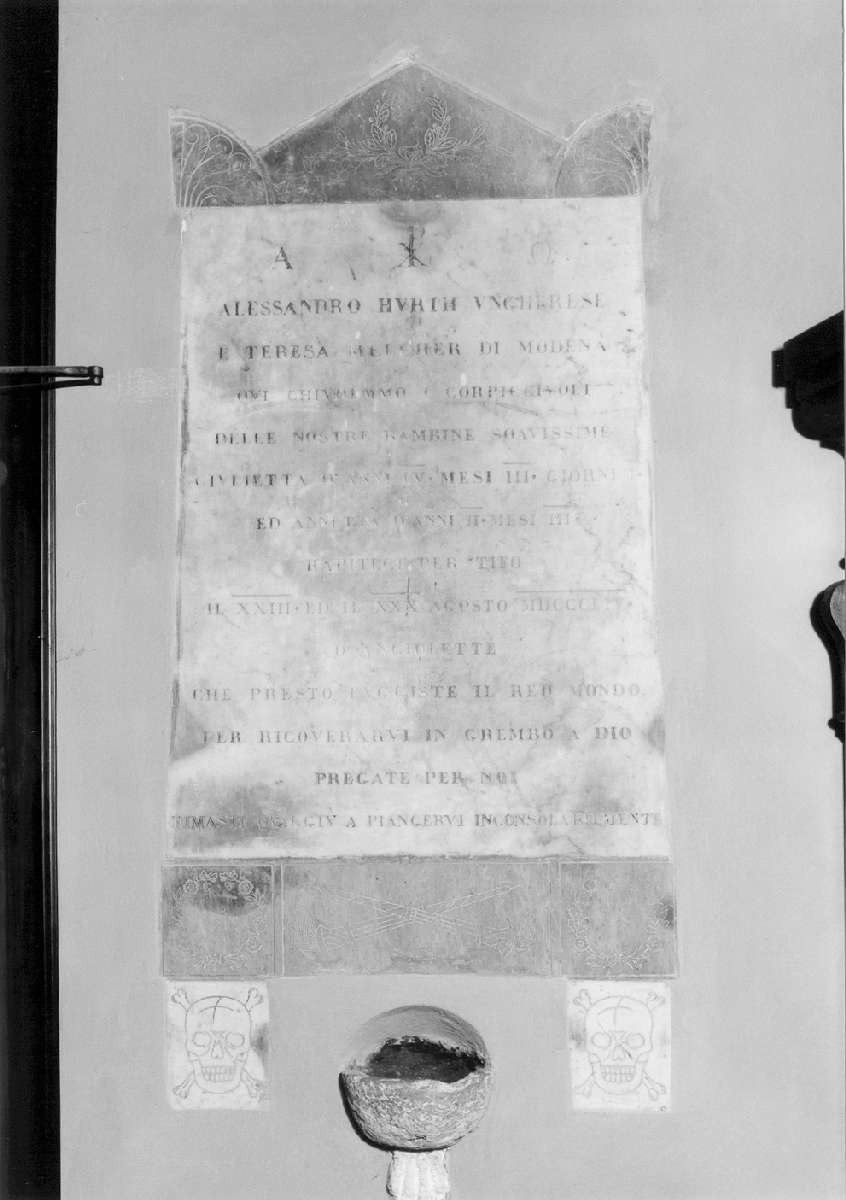 A ☧ Ω
ALESSANDRO HVRTH VNGHERESE
E TERESA MELCHER DI MODENA
QVI CHIVDEMMO I CORPICCIVOLI
DELLE NOSTRE BAMBINE SOAVISSIME
GIVLIETTA D'ANNI IV · MESI III · GIORNI
ED D'ANNI II · MESI III
PER TIFO
IL XXIII · ED IL XXX AGOSTO
O ANGIOLETTE
CHE PRESTO FVGGISTE IL REO MONDO
PER RICOVERARVI IN GREMBO A DIO
PREGATE PER NOI
RIMASTI QVAGGIV A PIANGERVI INCONSOLABILMENTE